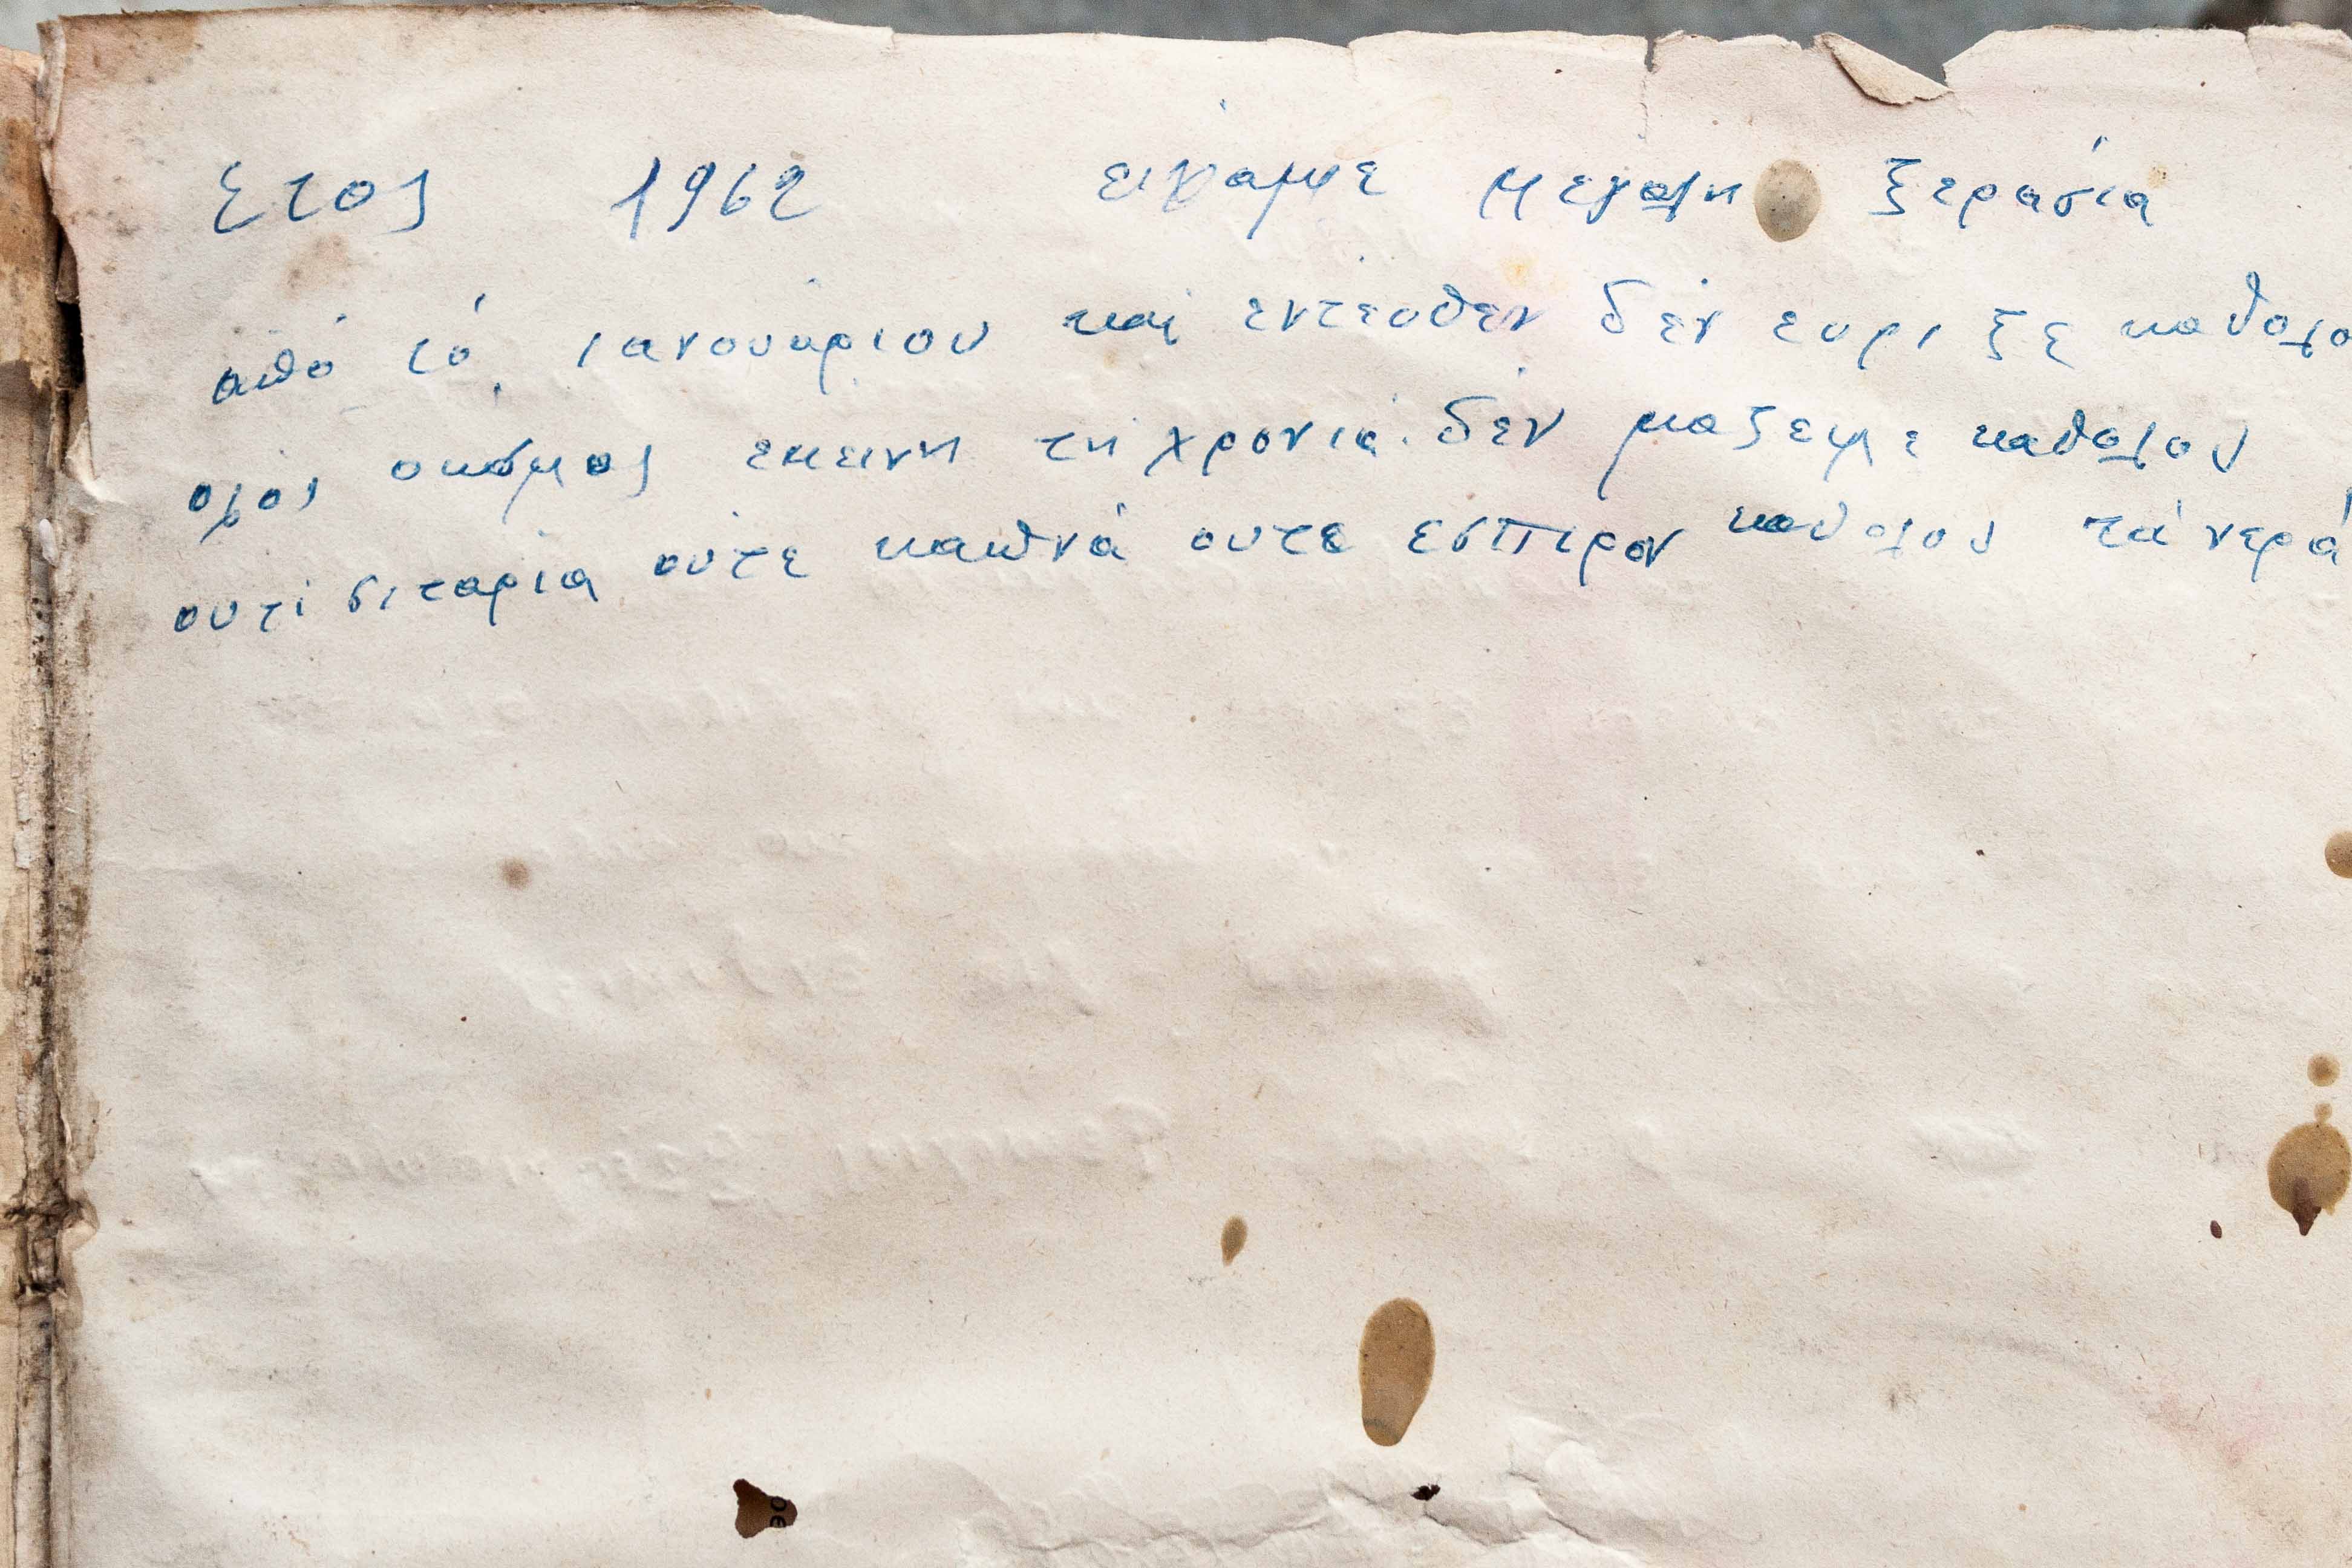 Ετος 1962 ειχαμε μεγαλη ξερασία
από τό ιανουαριου και εντευθεν δέν ευρι ξε καθολο
ολοσ οκόσμος εκεινη τη χρονιά. δέν μαζεψε καθολου
ουτι σιταρια ούτε καπνά ουτε εσπιραν καθολου τά νερά